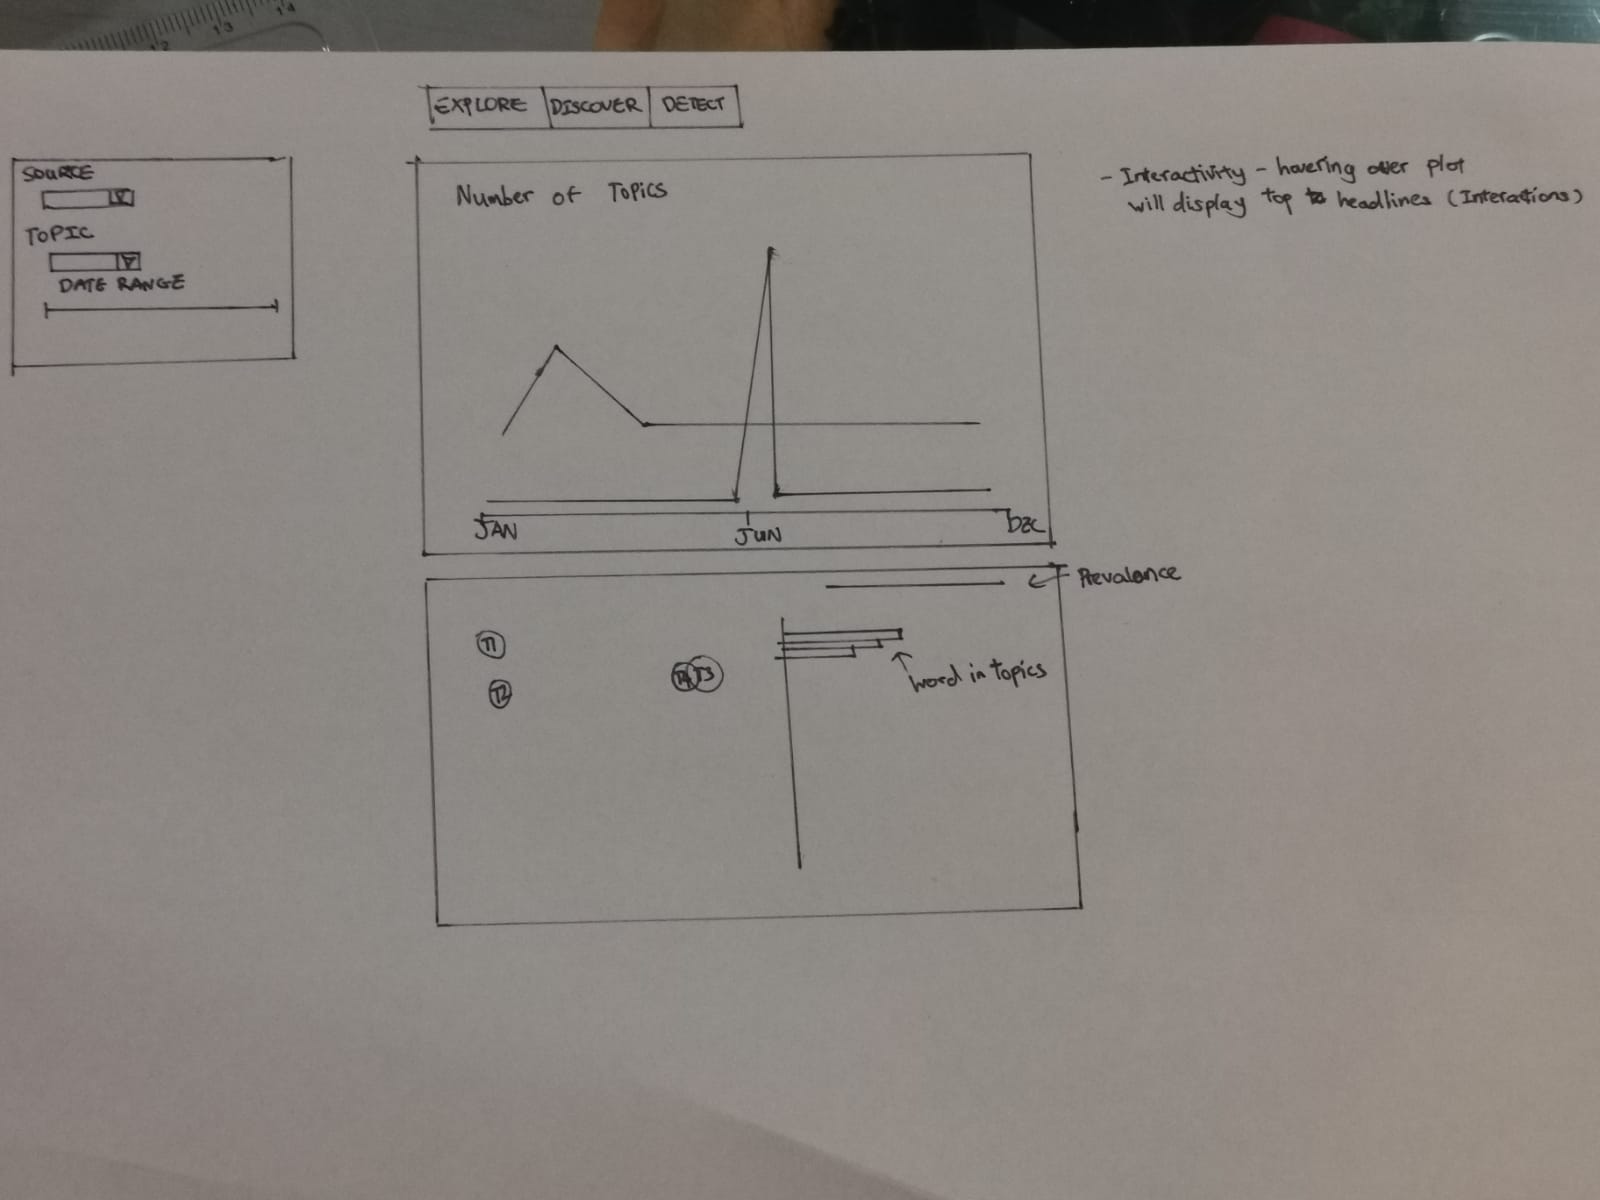 12 13 14
EXPLORE DISCOVER DETECT
SOURCE
TOPIC
DATE RANGE
Number of Topics
JAN JUN DEC
- Interactivity - hovering over plot
will display top headlines (Interactions)
Prevalence
T1
T2
T4 T3
word in topics